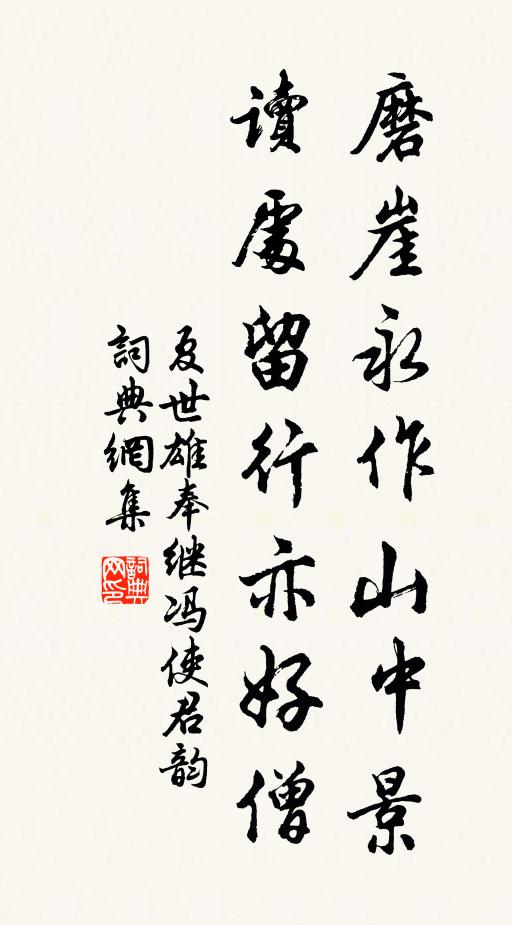 磨崖永作山中景
讀處留行亦好僧
夏世雄奉继冯使君韵
詞典網集
詞典网印